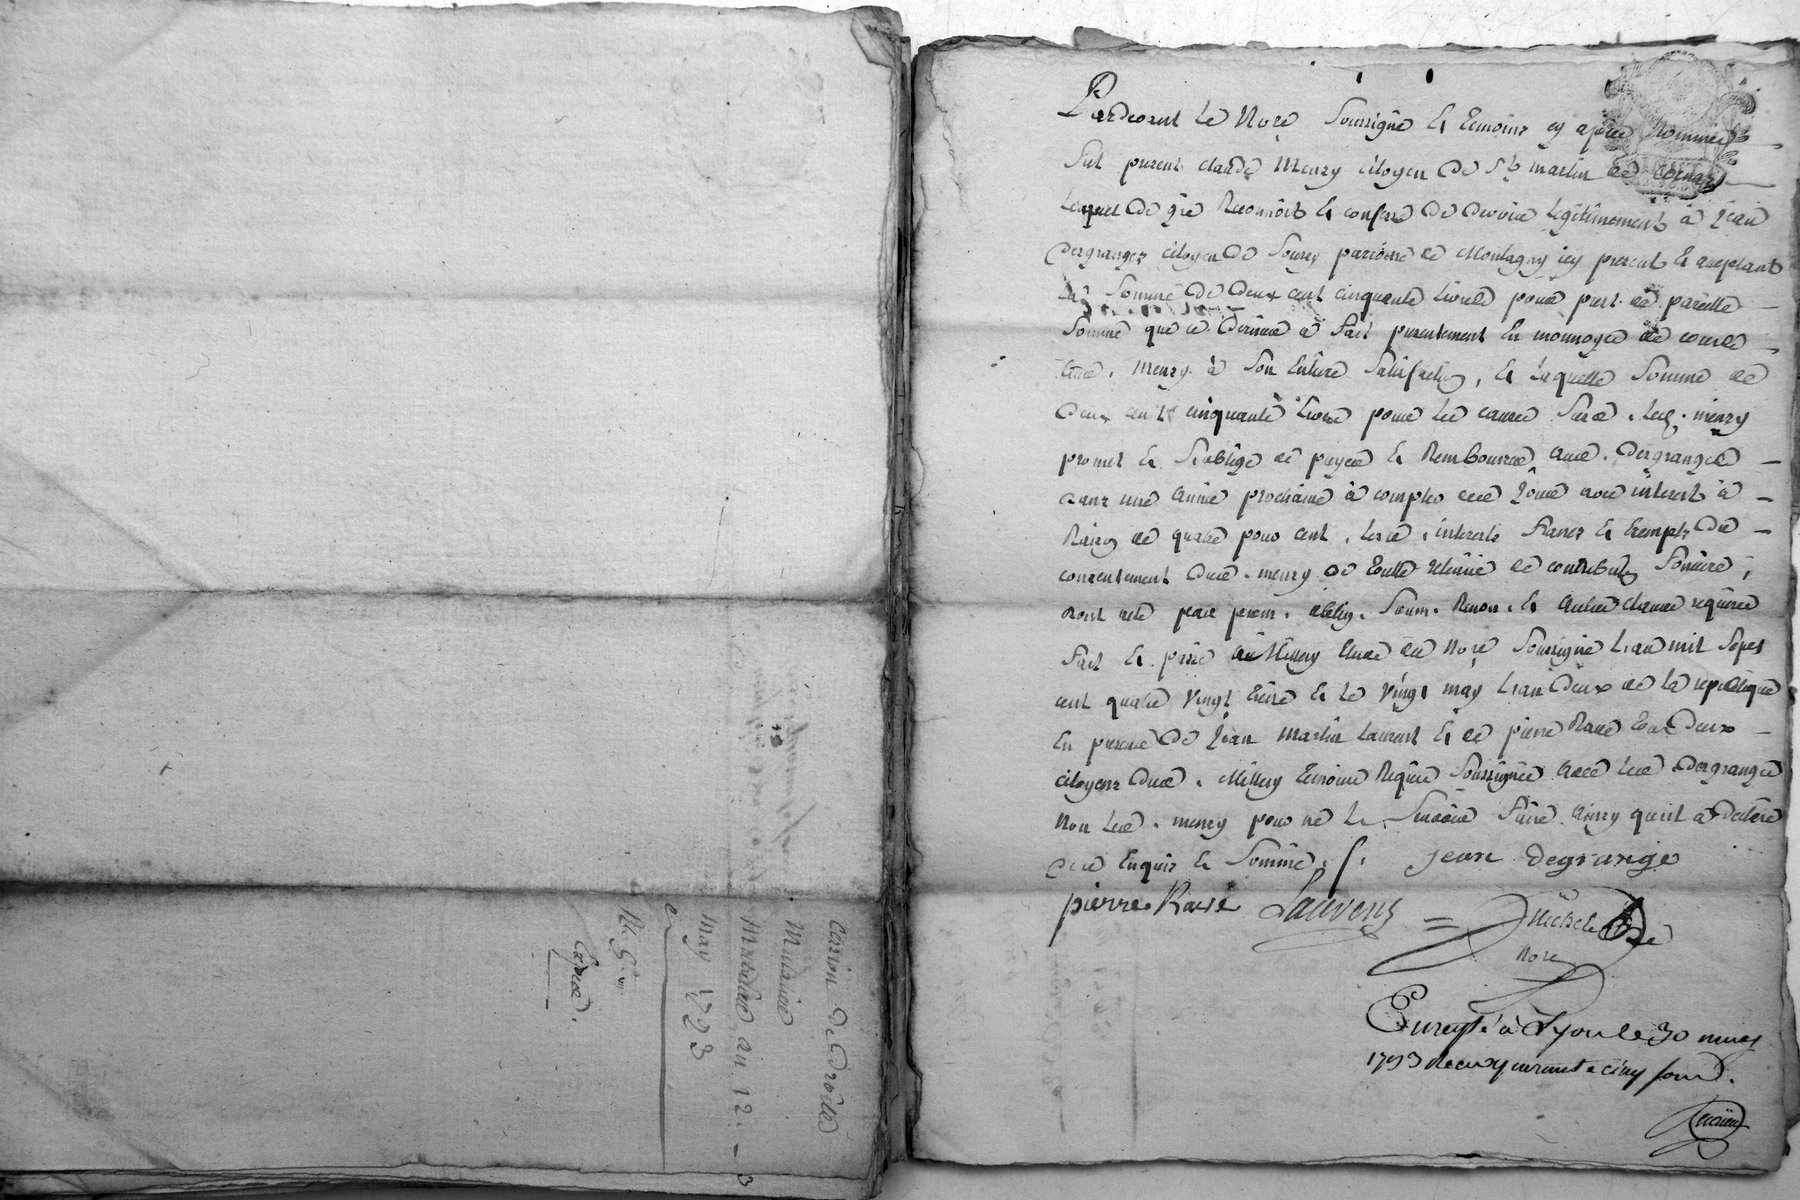 Pardevant le Nore Soussigné Et temoins cy apres Nommés
fut present claude Meney citoyen de St martin de cornas
lequel de gre Reconnoit Et confesse de devoir legitimement à Jean
Desgranges citoyen de Sourzy paroisse de Montagny icy present Et aceptant
la Somme de deux cent cinquante livres pour pret de pareille
Somme que ce dernier a fait presentement En monnoyes de cours
aud. Meney à Son Entiere Satisfaction, Et laquelle Somme de
deux cent cinquante livres pour les causes Sus d. led. meney
promet Et S'oblige de payer Et Rembourser aud. Desgranges
dans une année prochaine à compter de ce Jour avec interest à
Raison de quatre pour cent, lesd. interests francs Et Exempts du
consentement dud. meney de toutte retenue de contribution fonciere,
dont acte par prom. oblig. Soum. Renon. Et autres clauses requises
fait Et passé à Millery Etude du Nore Soussigné L'an mil Sept
cent quatre vingt treize Et le vingt may L'an deux de la republique
En presence de Jean Martin Laurent Et de pierre Race tous deux
citoyens dud. Millery temoins Requis Soussignés avec led. Desgranges
Non led. meney pour ne le Scavoir faire ainsy qu'il a declaré
de ce Enquis Et Sommé. /.
Jean degrange
pierre Race
Laurens
Nore
Enregté à Lyon le 30 may
1793 Reçu quarante cinq sous.
may 1793